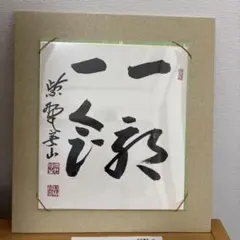 一期
一会
紫野